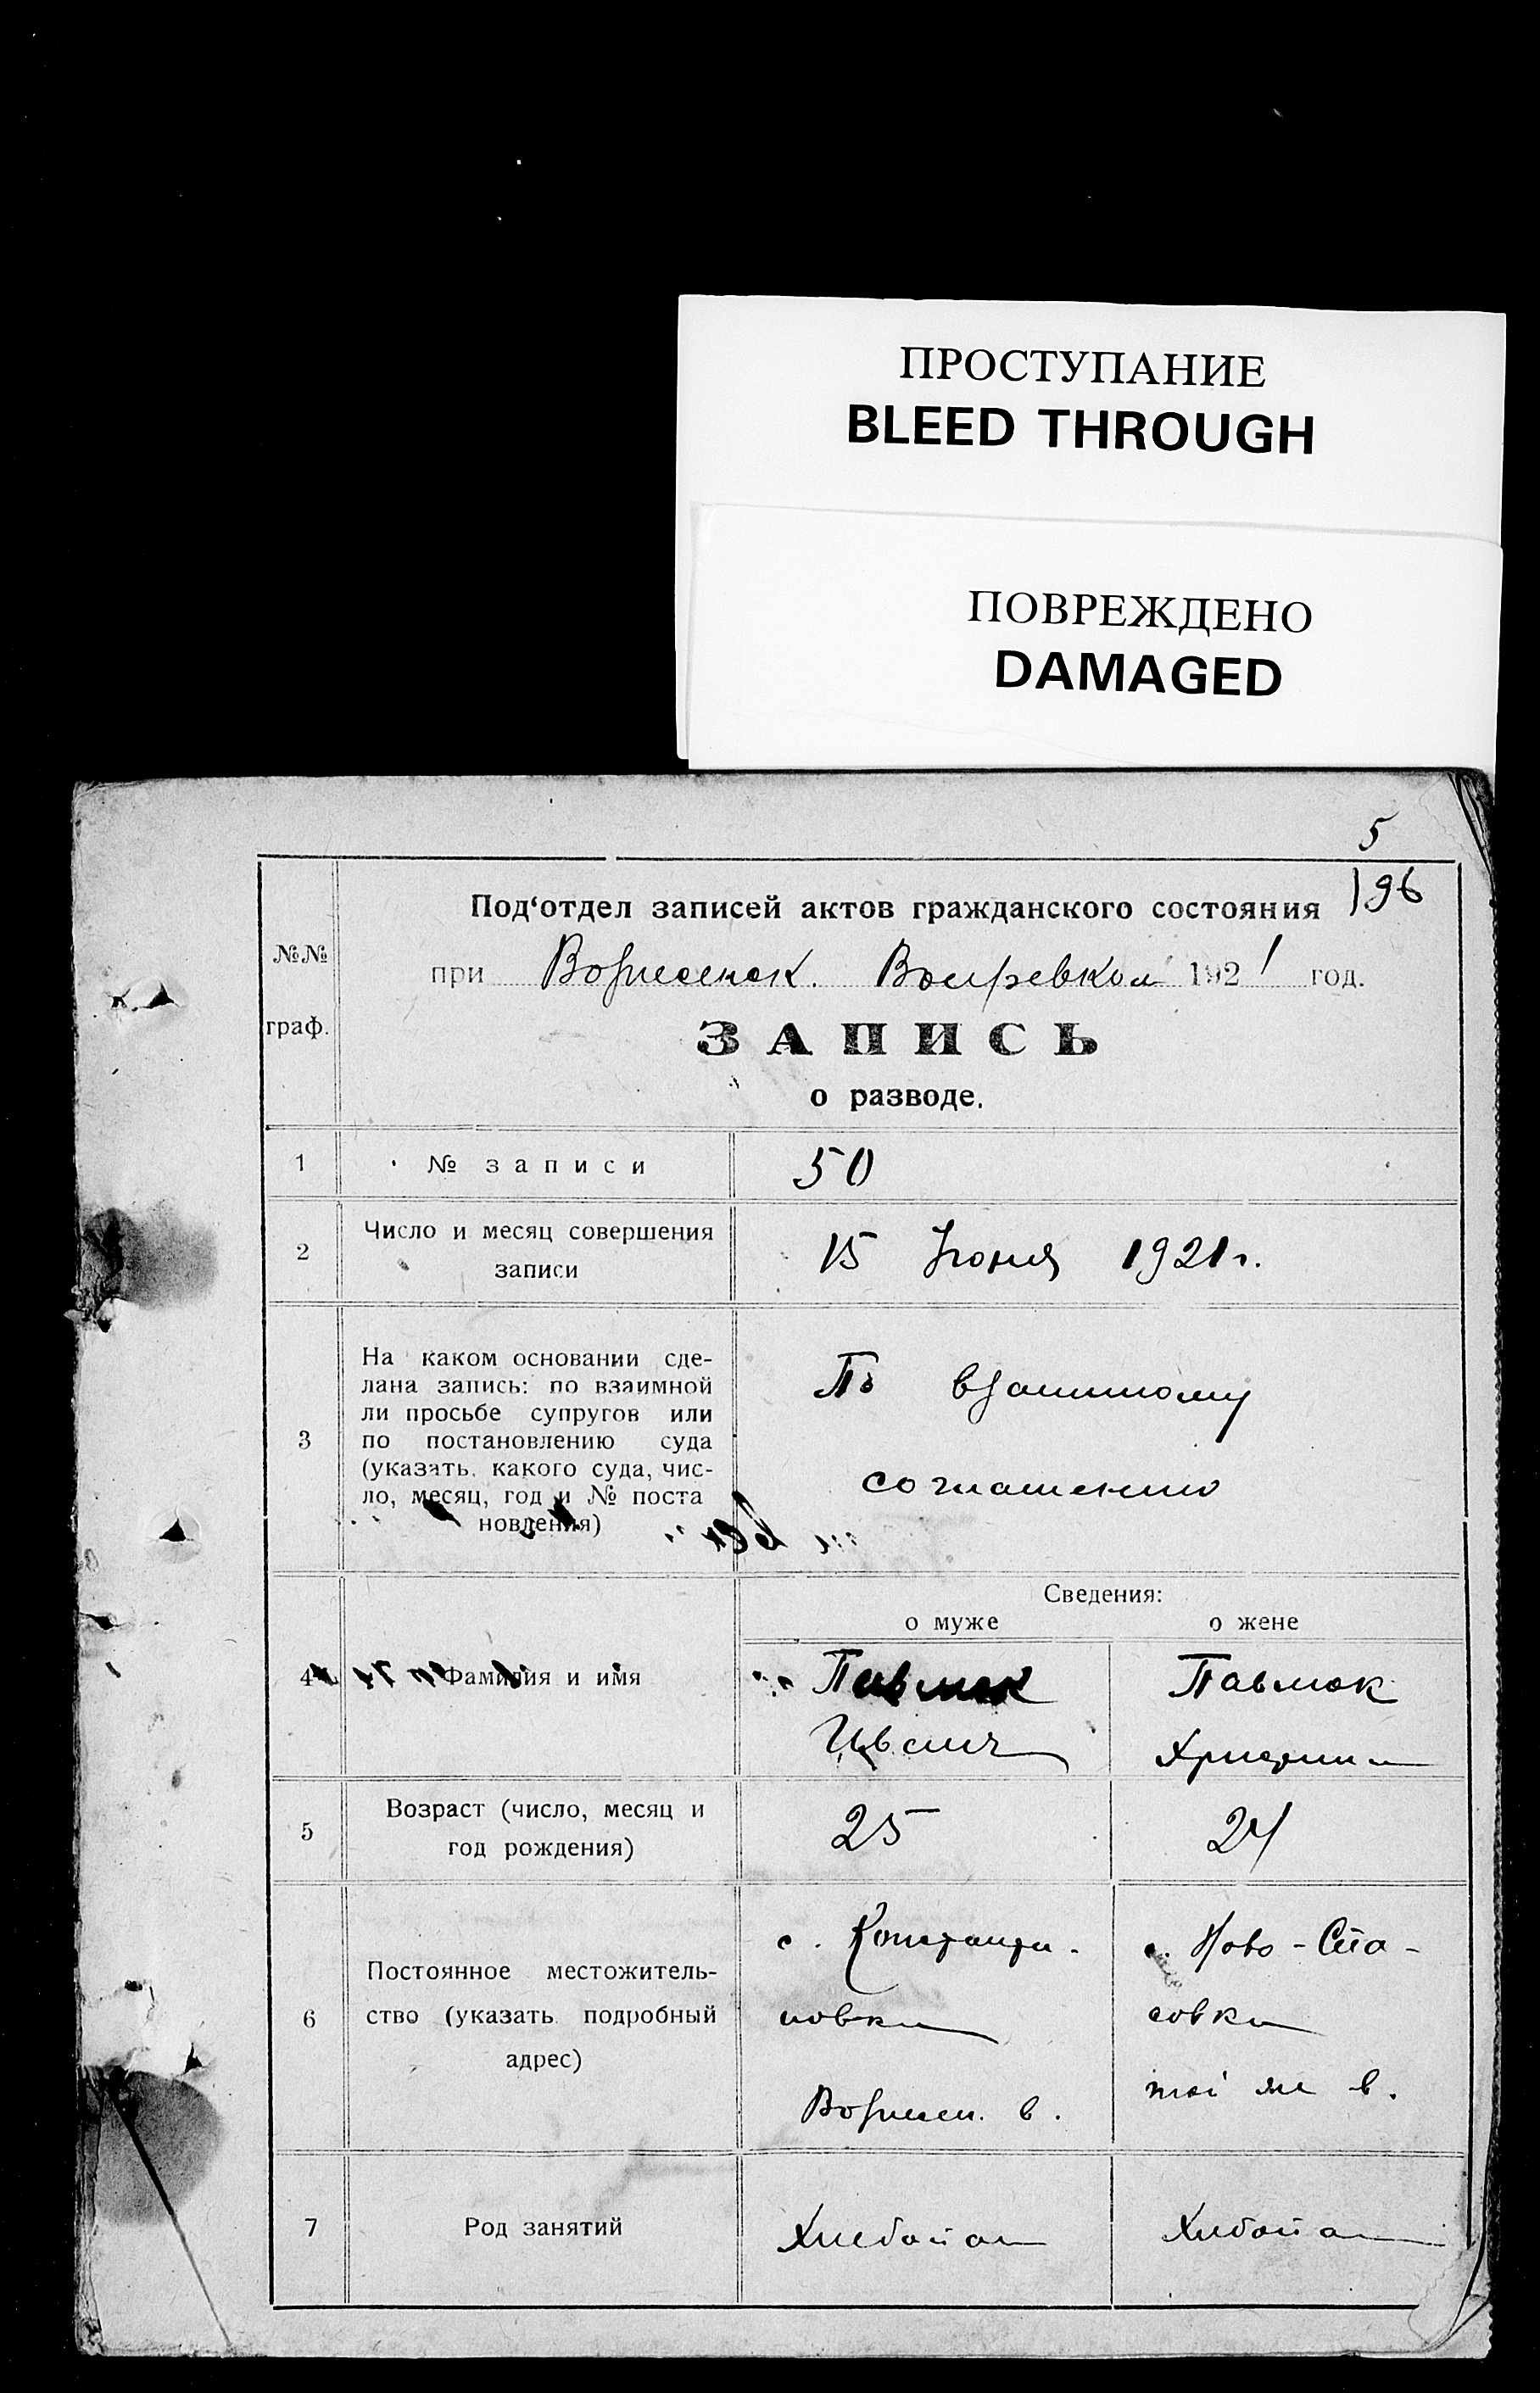 ПРОСТУПАНИЕ
BLEED THROUGH
ПОВРЕЖДЕНО
DAMAGED
5
196
№№
граф.
Под‘отдел записей актов гражданского состояния
при Вознесенск. Волревком 1921 год.
ЗАПИСЬ
о разводе.
1
№ записи
50
2
Число и месяц совершения
записи
15 Июня 1921 г.
3
На каком основании сде-
лана запись: по взаимной
ли просьбе супругов или
по постановлению суда
(указать, какого суда, чис-
ло, месяц, год и № поста
новления)
По взаимному
соглашению
Сведения:
о муже
о жене
4
Фамилия и имя
Павлюк
Павлюк
Христина
5
Возраст (число, месяц и
год рождения)
25
24
6
Постоянное местожитель-
ство (указать подробный
адрес)
с. Константи-
новка
Вознесен. в.
с. Ново-Спа-
совка
той же в.
7
Род занятий